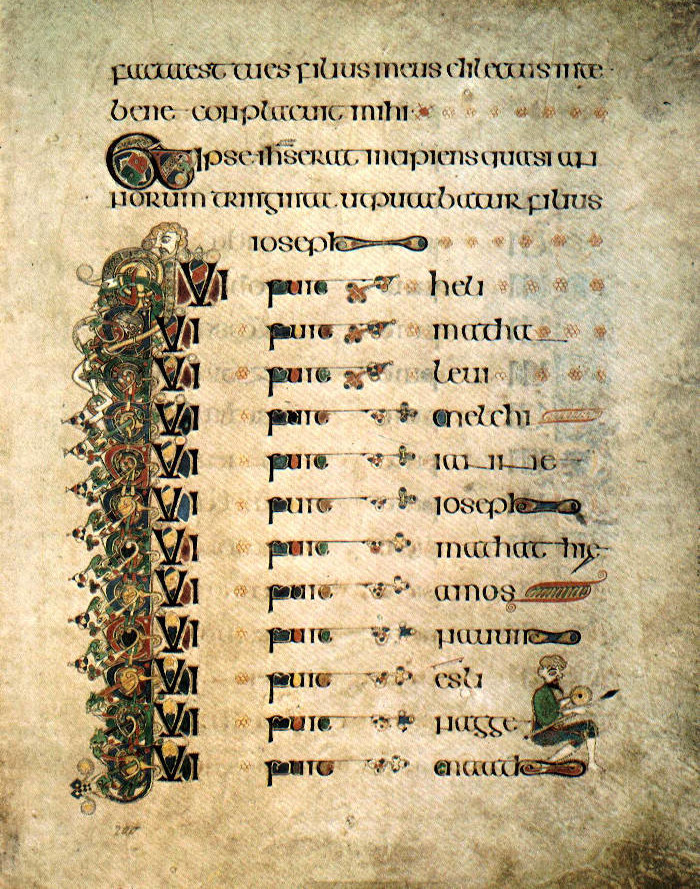 facta est tu es filius meus dilectus in te
bene conplacuit mihi
Et ipse ihs erat incipiens quasi an
norum triginta ut putabatur filius
ioseph
QVI fuit heli
QVI fuit matha
QVI fuit leui
QVI fuit melchi
QVI fuit iannae
QVI fuit ioseph
QVI fuit mathat hie
QVI fuit amos
QVI fuit nauum
QVI fuit esli
QVI fuit nagge
QVI fuit maath
200